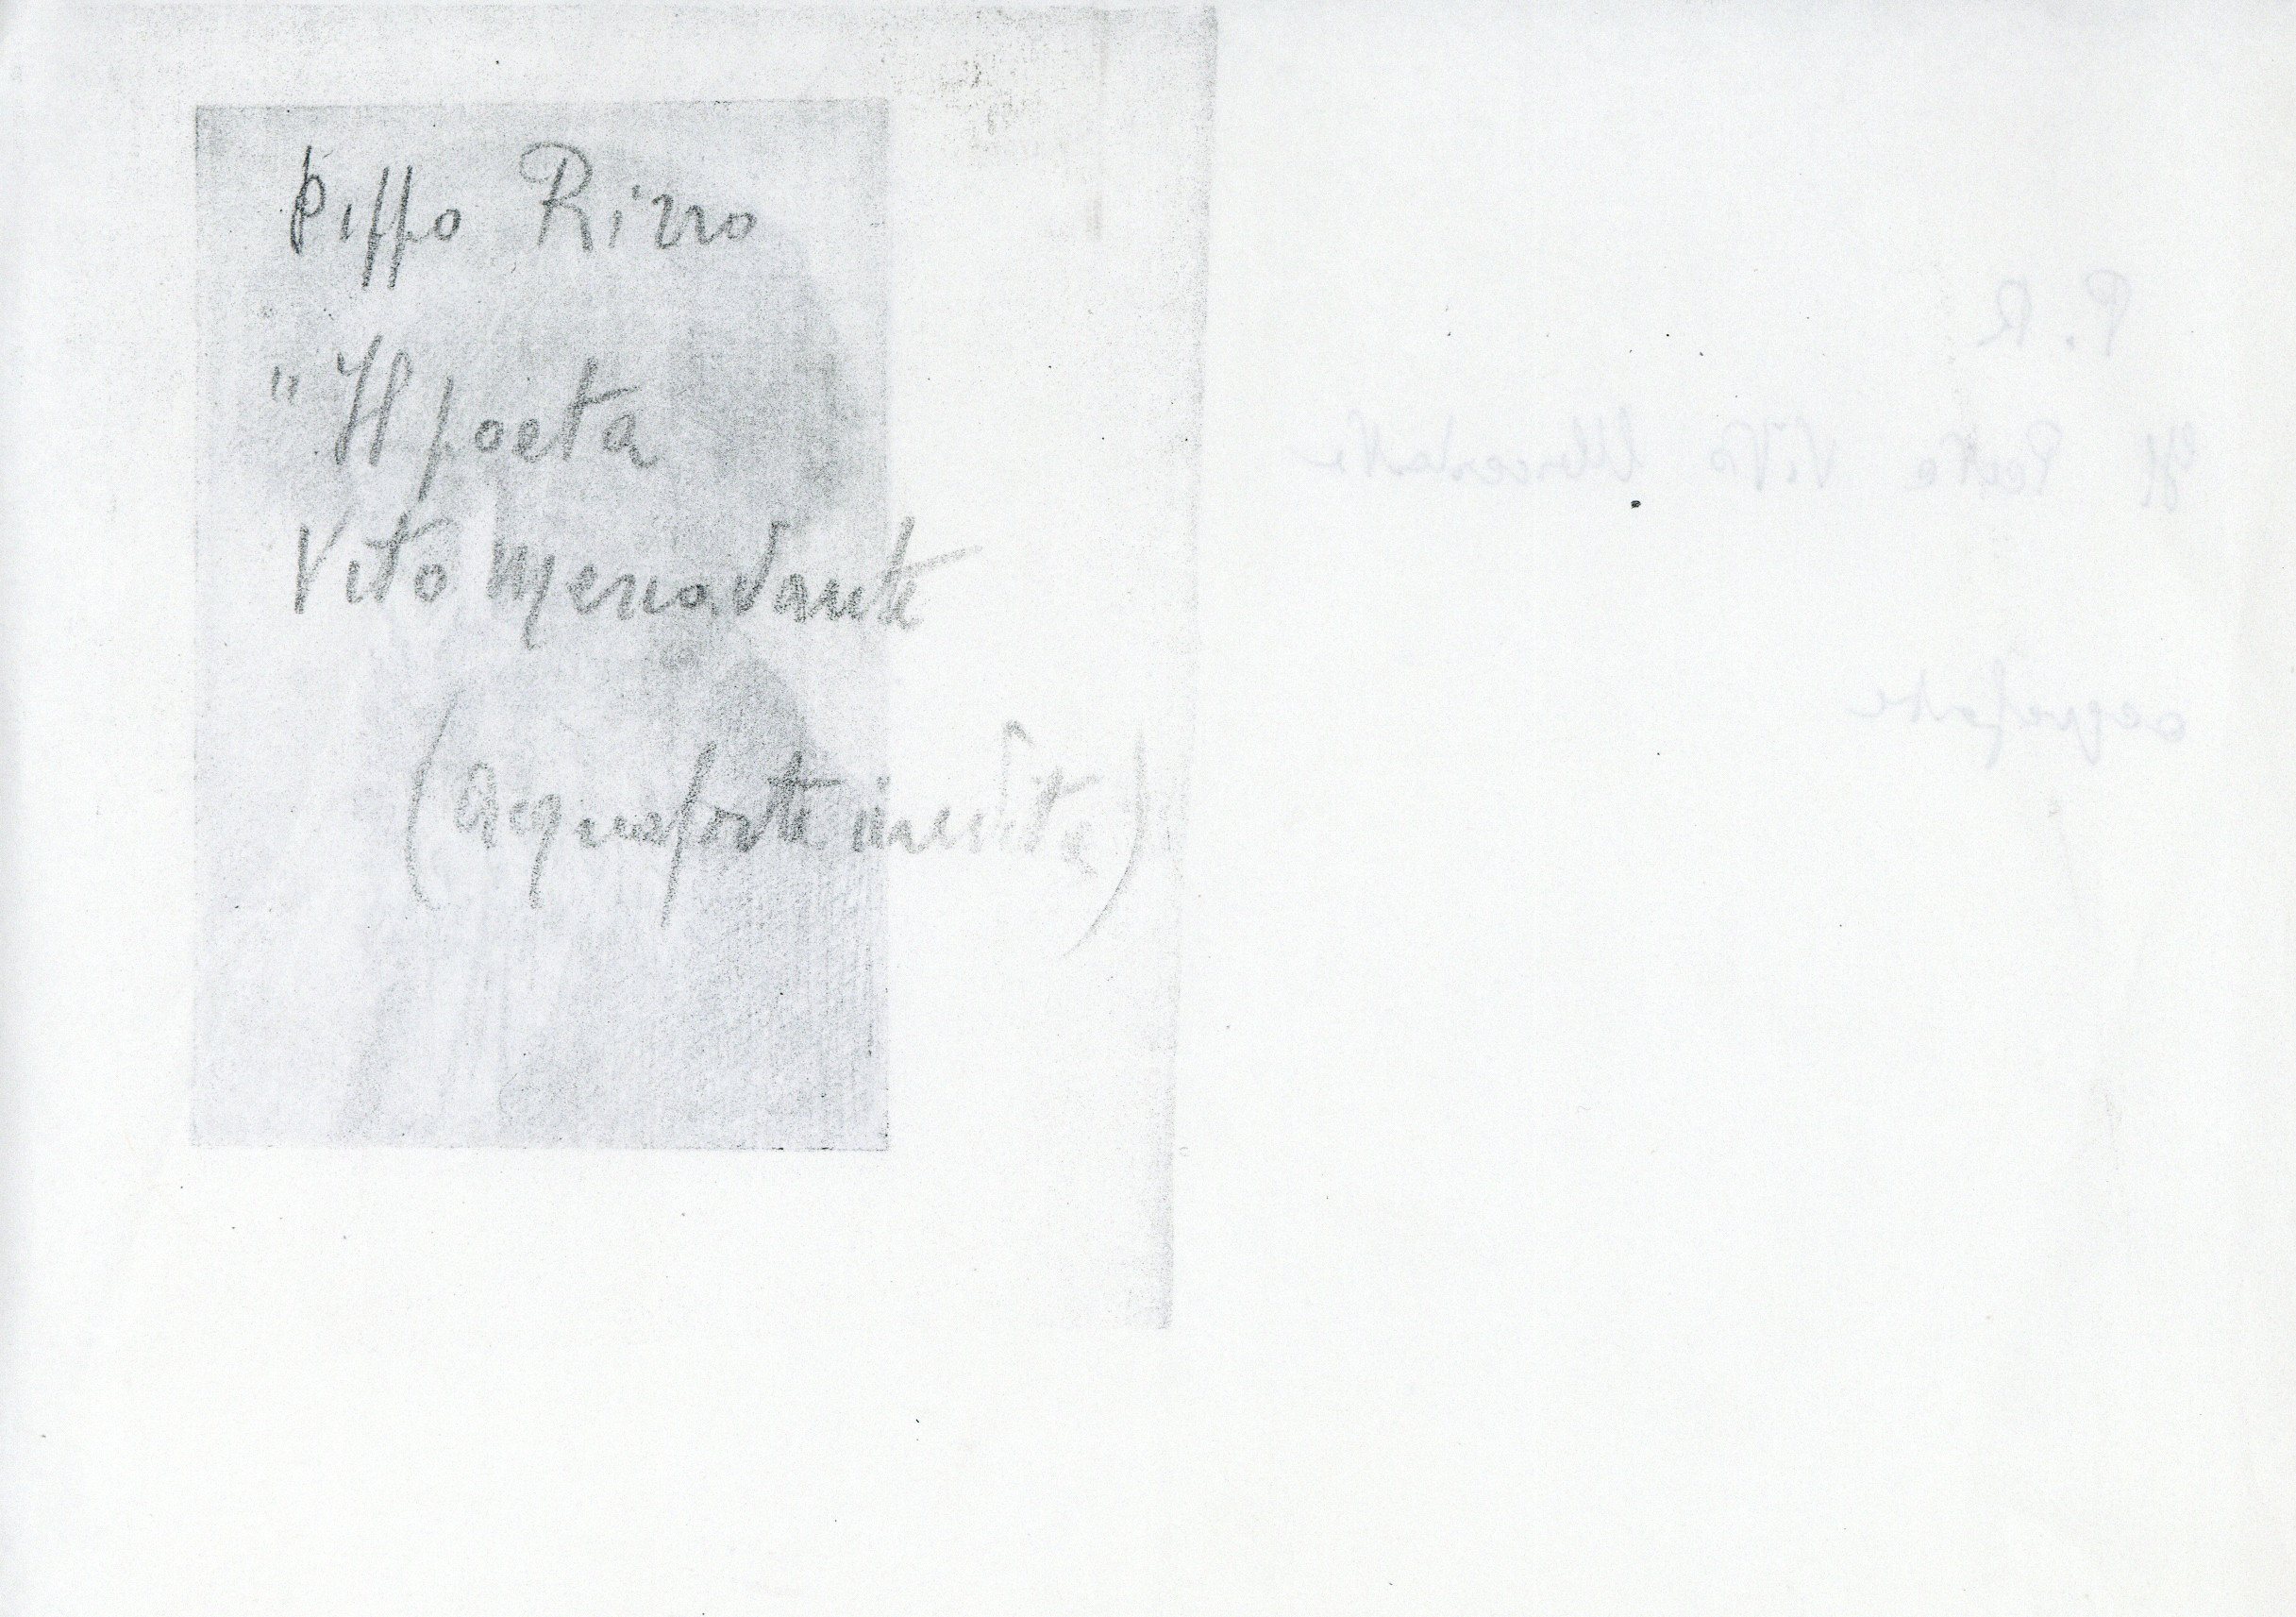 Pippo Rizzo
"Il poeta
Vito Mercadante
(acquaforte inedita)
P. R.
Il Poeta Vito Mercadante
acquaforte